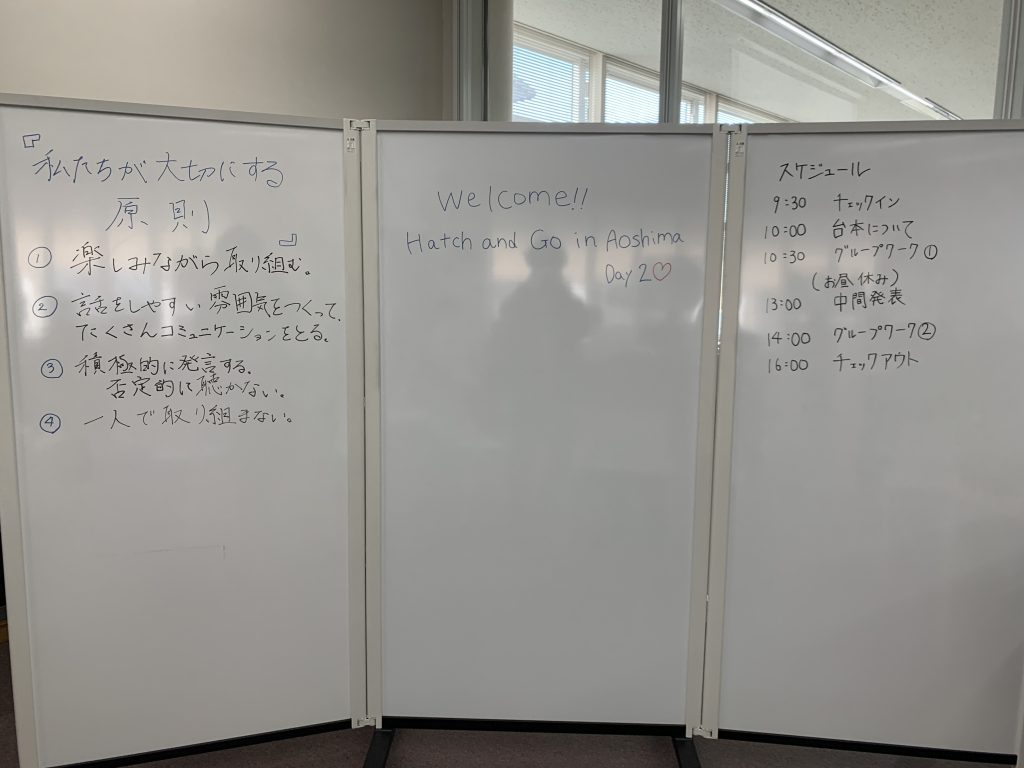 『私たちが大切にする
原則』
① 楽しみながら取り組む。
② 話をしやすい雰囲気をつくって、
たくさんコミュニケーションをとる。
③ 積極的に発言する。
否定的に聴かない。
④ 一人で取り組まない。
Welcome!!
Hatch and Go in Aoshima
Day 2♡
スケジュール
9:30 チェックイン
10:00 台本について
10:30 グループワーク①
(お昼休み)
13:00 中間発表
14:00 グループワーク②
16:00 チェックアウト